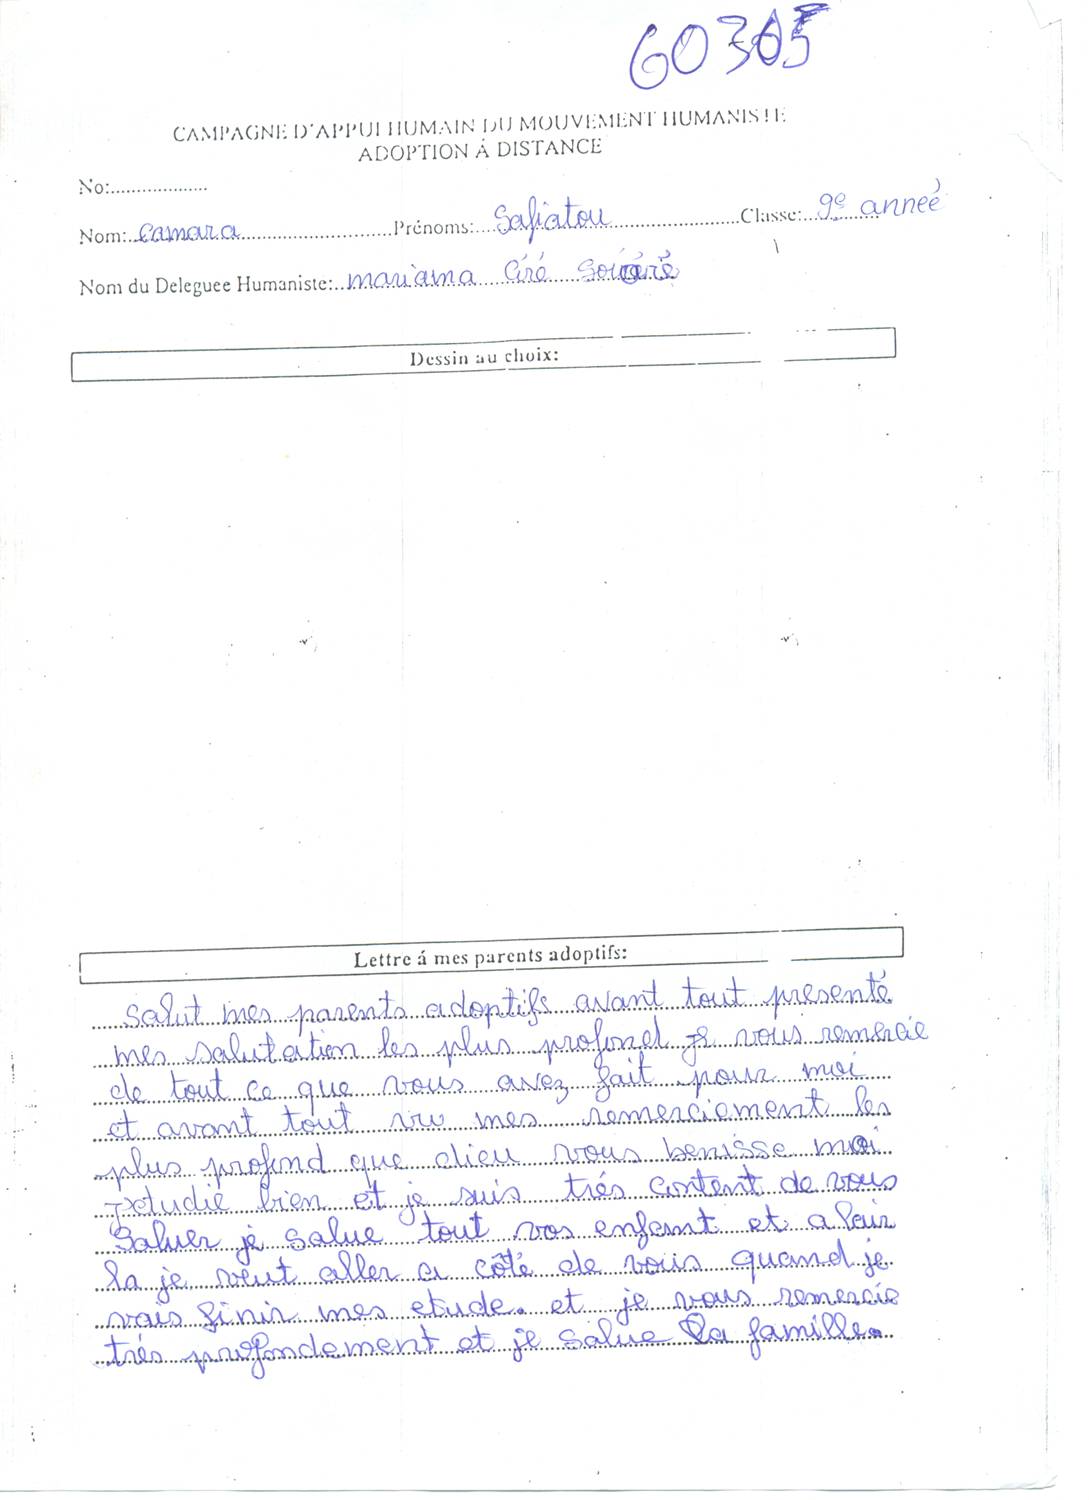 60305
CAMPAGNE D'APPUI HUMAIN DU MOUVEMENT HUMANISTE
ADOPTION Á DISTANCE
No:...................
Nom:..camara..............................Prénoms:....Safiatou..........................Classe:...9e année
Nom du Deleguee Humaniste:..mariama Ciré
Dessin au choix:
Lettre á mes parents adoptifs:
Salut mes parents adoptifs avant tout presenté
mes salutation les plus profond je vous remercie
de tout ce que vous avez fait pour moi
et avant tout vu mes remerciement les
plus profond que dieu vous benisse moi
j'etudie bien et je suis trés content de vous
Saluer je salue tout vos enfant et a
la je veut aller a côté de vous quand je
vais finir mes etude. et je vous remercie
trés profondement et je salue la famille.